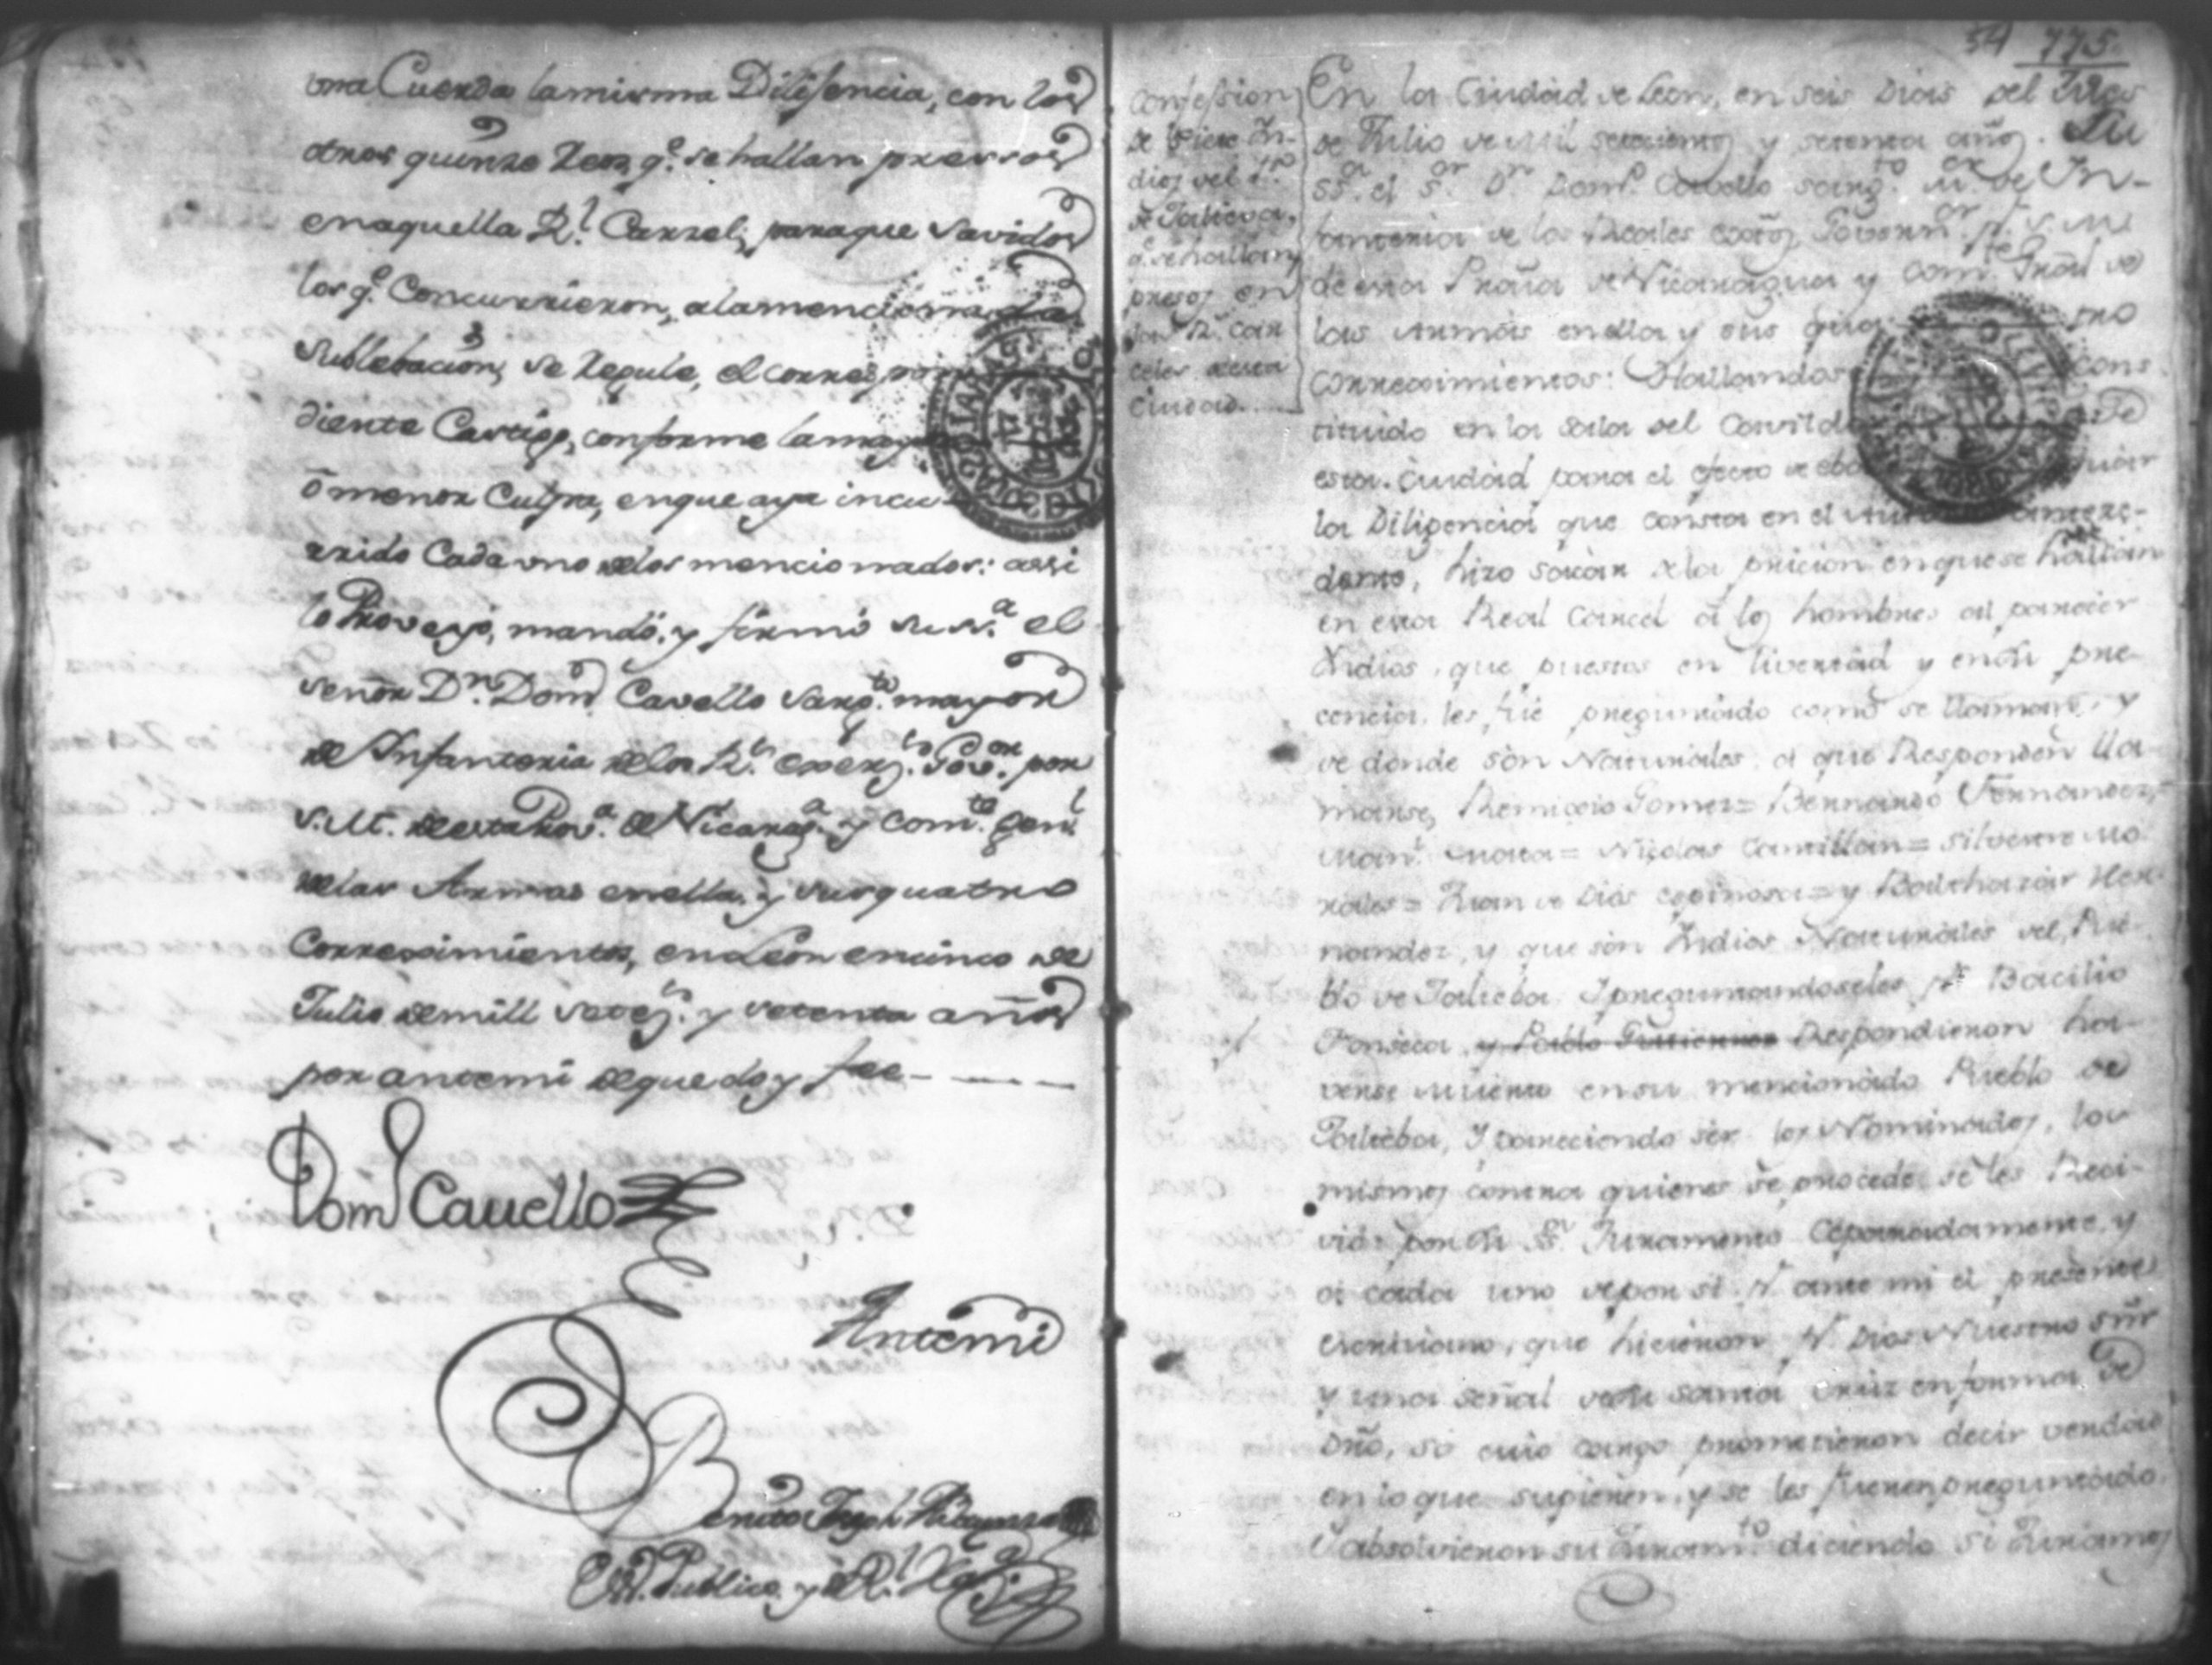 una Cuerda la misma Dilifencia, con los
otros quinze Reos q.e se hallan pressos
en aquella R.l Carzel; para que Savidos
los q.e Concurrieron, a la mencionada
Sublebacion, se Regule, el correspon
diente Castigo, conforme la mayor
ó menor Culpa, en que aya incu-
rrido Cada uno de los mencionados: assi
lo Proveyó, mandó, y firmó su s.a el
señor D.n Dom.o Cavello Sarg.to mayor
de Infanteria de los R.s exerz.tos Gov.or por
S.M. de esta Prov.a de Nicarag.a y Com.te Gen.l
de las Armas en ella, y sus quatro
Corregimientos, en Leon en cinco de
Julio de mill setez.s y setenta años
por ante mi de que doy fee
Dom.o Cauello
Ante mi
Benito Joseph
Ess.no Publico, y de R.l Haz.da
54 775.
Confession
de siete In-
dios del P.lo
de Talieva,
q.e se hallan
presos en
las R.s Car
celes de esta
Ciudad.
En la Ciudad de Leon, en seis Dias del Mes
de Julio de Mil setecientos y setenta años. Su
ss.a el s.or D.n Dom.o Cavello Sarg.to M.or de In-
fanteria de los Reales exttos Governor.or p.r S.M.
de esta Prov.a de Nicaragua y Com.te Gral de
las Armas en ella y sus qua tro
corregimientos: Hallandose cons
tituido en la Sala del Cavildo de
esta Ciudad para el efecto de eba cuar
la Diligencia que consta en el Auto antece-
dente, hizo sacar de la pricion en que se hallan
en esta Real Carcel á los hombres al parecer
Indios, que puestos en livertad y en su pre-
cencia, les fue preguntado como se llaman, y
de donde son Naturales, a que Responden lla-
marse, Remigio Gomez= Bernardo Fernandez,=
Man.l = Nicolas Cantillan= Silvestre Mo
rales= Juan de Dios espinosa= y Balthazar Her-
nandez, y que son Indios Naturales del Pue-
blo de Talieba. Y preguntandoseles p.r Bacilio
Fonseca y Pablo Gutierres Respondieron ha-
verse muerto en su mencionado Pueblo de
Talieba, Y pareciendo ser los Nominados, los
mismos contra quienes se procede, se les Reci-
vió por su ss.a Juramento Ceparadamente y
a cada uno de por si p.r ante mi el presente
escrivano, que hicieron p.r Dios Nuestro Sñr
y una señal de su santa Cruz en forma de
dro, so cuio cargo prometieron decir verdad
en lo que supieren, y se les fuere preguntado.
Y absolvieron su Juram.to diciendo Si Juramos